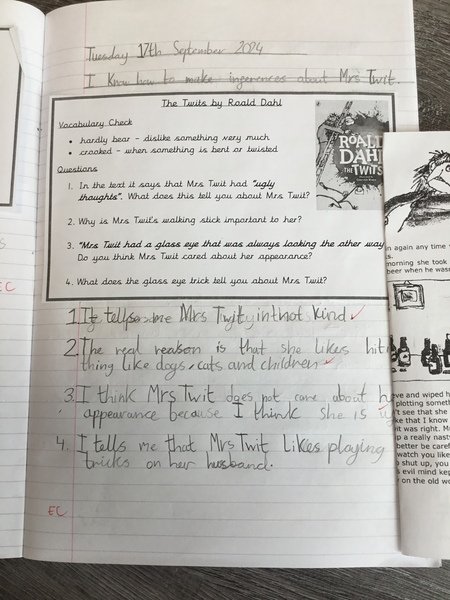 Tuesday 17th September 2024
I know how to make ingerences about Mrs Twit.
The Twits by Roald Dahl
Vocabulary Check
• hardly bear - dislike something very much
• crooked - when something is bent or twisted
Questions
1. In the text it says that Mrs Twit had "ugly
thoughts". What does this tell you about Mrs Twit?
2. Why is Mrs Twit's walking stick important to her?
3. "Mrs Twit had a glass eye that was always looking the other way
Do you think Mrs Twit cared about her appearance?
4. What does the glass eye trick tell you about Mrs Twit?
ROALD
DAHL
THE TWITS
1. It tells me Mrs Twit in not kind
2. The real reason is that she likes hit
thing like dogs, cats and children
3. I think Mrs Twit does not care about h
appearance because I think she is ug
4. I tells me that Mrs Twit Likes playing
tricks on her husband.
EC
EC
n again any time
s.
morning she took
beer when he wasn
ve and wiped h
plotting someth
't see that she
ke that I know
it was right. M
p a really nast
better be caref
watch you like
o shut up, you
s evil mind kep
y on the old w